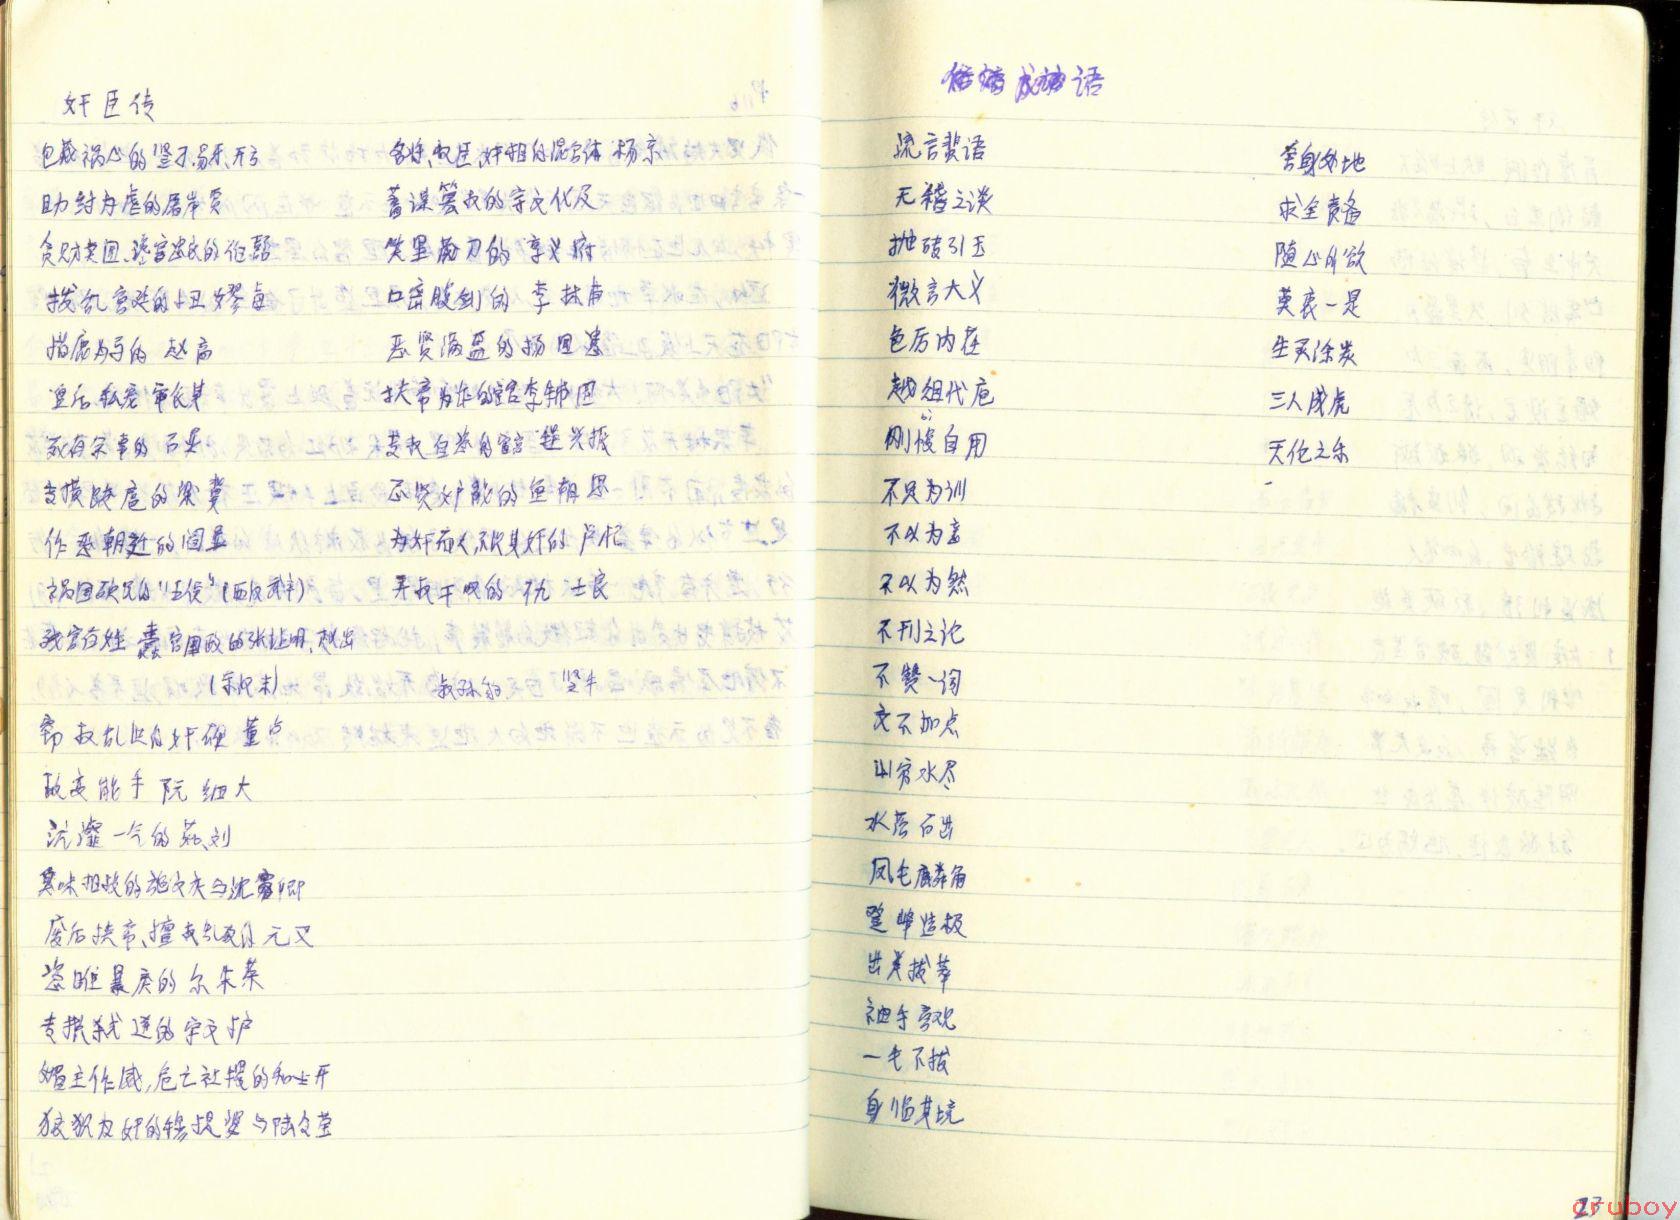 奸臣传
包藏祸心的竖刁、易牙、开方
助纣为虐的屠岸贾
贪财卖国、的伯嚭
拨乱宫廷的丑 嫪毐
指鹿为马的 赵高
的石显
专横跋扈的梁冀
作恶朝廷的阎显
祸国殃民的"五侯"
(宋徽宗末)
窃权乱世的奸雄 董卓
政变能手 阮细大
沆瀣一气的茹、刘
臭味相投的施文庆与沈客卿
废后挟帝、擅权乱政的元叉
恣睢暴戾的尔朱荣
专横弑逆的宇文护
媚主作威,危亡社稷的和士开
狼狈为奸的穆提婆与陆令萱
客体、权臣、奸相的混合体 杨素
蓄谋篡权的宇文化及
笑里藏刀的李义府
口蜜腹剑的 李林甫
恶贯满盈的杨国忠
挟帝为作的宦官李辅国
专权自恣的宦官程元振
不贤妒能的鱼朝恩
为奸而人不知其奸的卢杞
弄权干政的 仇士良
叔孙豹 竖牛
成语
流言蜚语
无稽之谈
抛砖引玉
微言大义
色厉内荏
越俎代庖
刚愎自用
不足为训
不以为意
不以为然
不刊之论
不赞一词
文不加点
山穷水尽
水落石出
凤毛麟角
登峰造极
出类拔萃
袖手旁观
一毛不拔
身临其境
害身外地
求全责备
随心所欲
莫衷一是
生灵涂炭
三人成虎
天伦之乐
23
cruboy